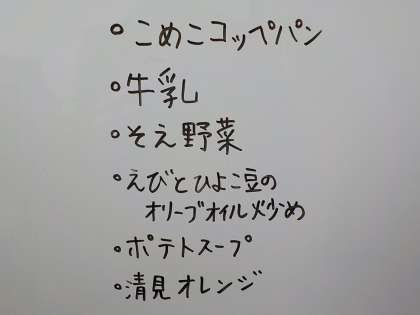 ・こめこコッペパン
・牛乳
・そえ野菜
・えびとひよこ豆の
オリーブオイル炒め
・ポテトスープ
・清見オレンジ